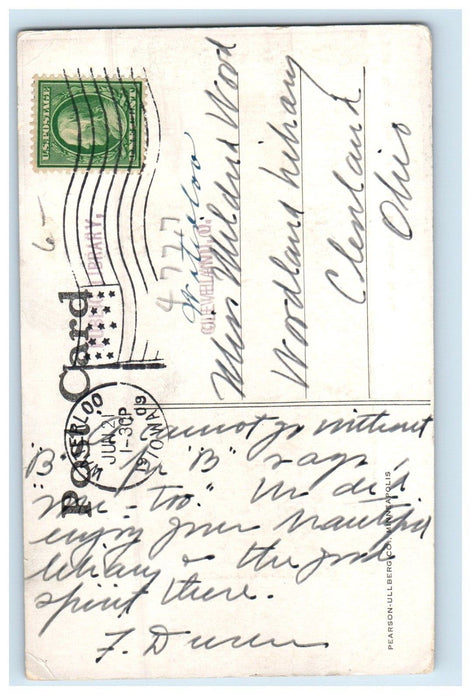 U.S. POSTAGE
Post Card
WATERLOO
JUN 21
1-30P
1909
IOWA
LIBRARY,
CLEVELAND, O.
4777
Waterloo
6-
Miss Mildred Wood
Woodland Library
Cleveland
Ohio
cannot go without
"B" says
me - too." We did
enjoy your beautiful
library & the good
spirit there.
F.
PEARSON-ULLBERG CO., MINNEAPOLIS